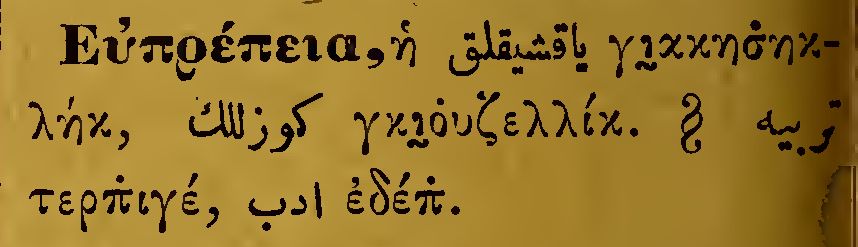 Εὐπρέπεια, ἡ ياقشيقلق γι̮ακκησ̇ηκ-
λήκ, كوزللك γκι̮ο̇υζελλίκ. § تربيه
τερπ̇ιγέ, ادب ἐδέπ̇.